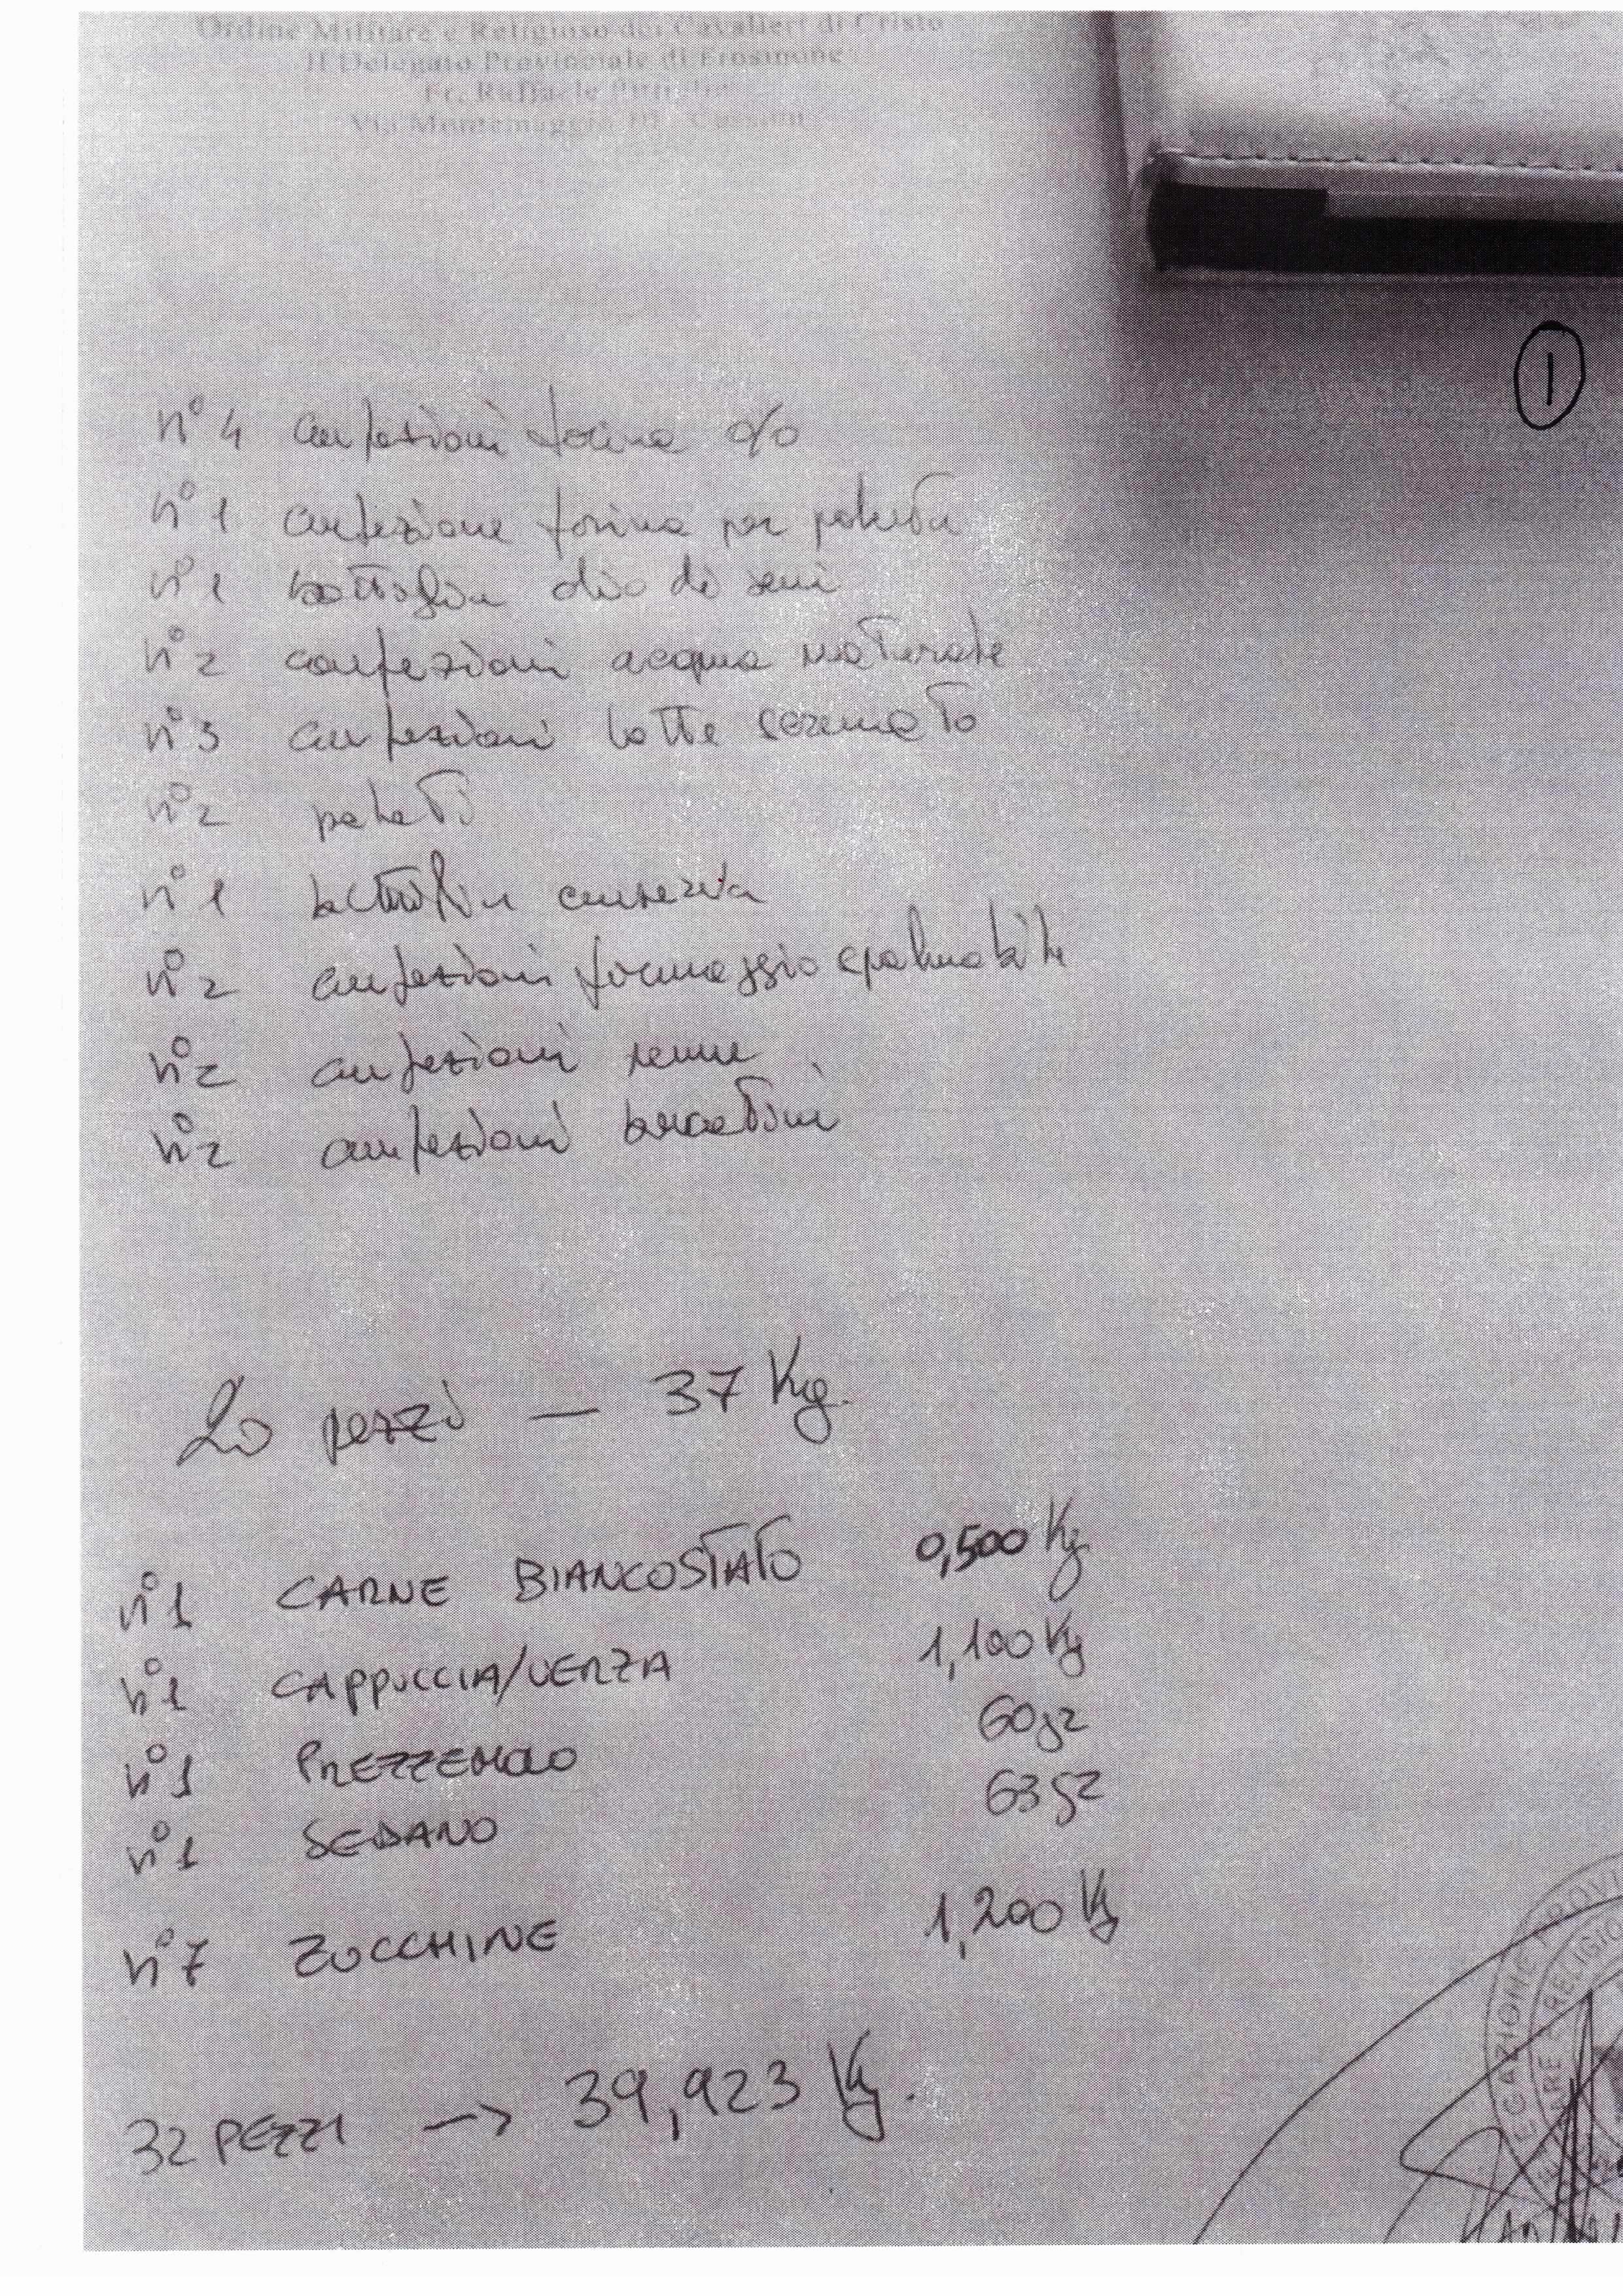 Ordine Militare e Religioso dei Cavalieri di Cristo
Il Delegato Provinciale di Frosinone
Fr. Raffaele
Via Montemaggio Cassino
1
n° 4 confezioni farina 0/0
n° 1 confezione farina per polenta
n° 1 bottiglia olio di semi
n° 2 confezioni acqua naturale
n° 3 confezioni latte scremato
n° 2
n° 1 bottiglia conserva
n° 2 confezioni formaggio spalmabile
n° 2 confezioni
n° 2 confezioni
20 pezzi — 37 Kg.
n° 1 CARNE BIANCOSTATO 0,500 Kg
n° 1 CAPPUCCIA/VERZA 1,100 Kg
n° 1 PREZZEMOLO 60 gr
n° 1 SEDANO 63 gr
n° 7 ZUCCHINE 1,200 Kg
32 PEZZI → 39,923 Kg.